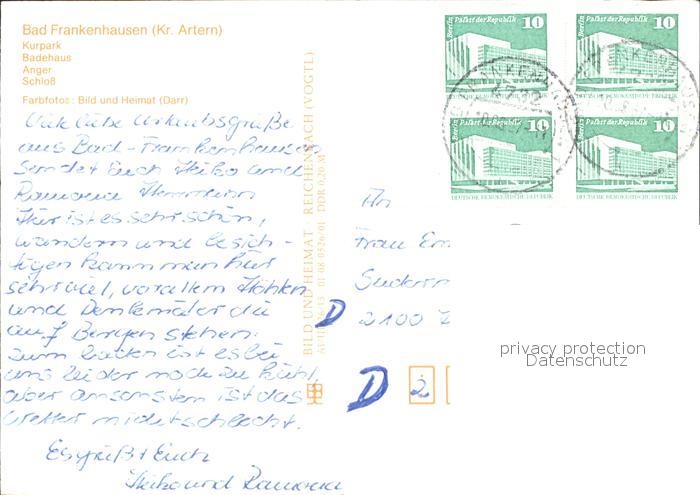 Bad Frankenhausen (Kr. Artern)
Kurpark
Badehaus
Anger
Schloß
Farbfotos: Bild und Heimat (Darr)
Viele liebe Urlaubsgrüße
aus Bad-Frankenhausen
sendet Euch Heiko und
Ramona Hermann
Hier ist es sehr schön,
wandern und besich-
tigen kann man hier
sehr viel, vor allem Höhlen
und Denkmäler die
auf Bergen stehen.
Zum baden ist es bei
uns leider noch zu kühl,
aber ansonsten ist das
Wetter nicht schlecht.
Es grüßt Euch
Heiko und Ramona
BILD UND HEIMAT REICHENBACH (VOGTL)
01 06 0326/01 DDR 0,20 M
Berlin Palast der Republik 10
DEUTSCHE DEMOKRATISCHE REPUBLIK
Berlin Palast der Republik 10
DEUTSCHE DEMOKRATISCHE REPUBLIK
Berlin Palast der Republik 10
DEUTSCHE DEMOKRATISCHE REPUBLIK
Berlin Palast der Republik 10
DEUTSCHE DEMOKRATISCHE REPUBLIK
An
Frau
D 2100
D 2
privacy protection
Datenschutz